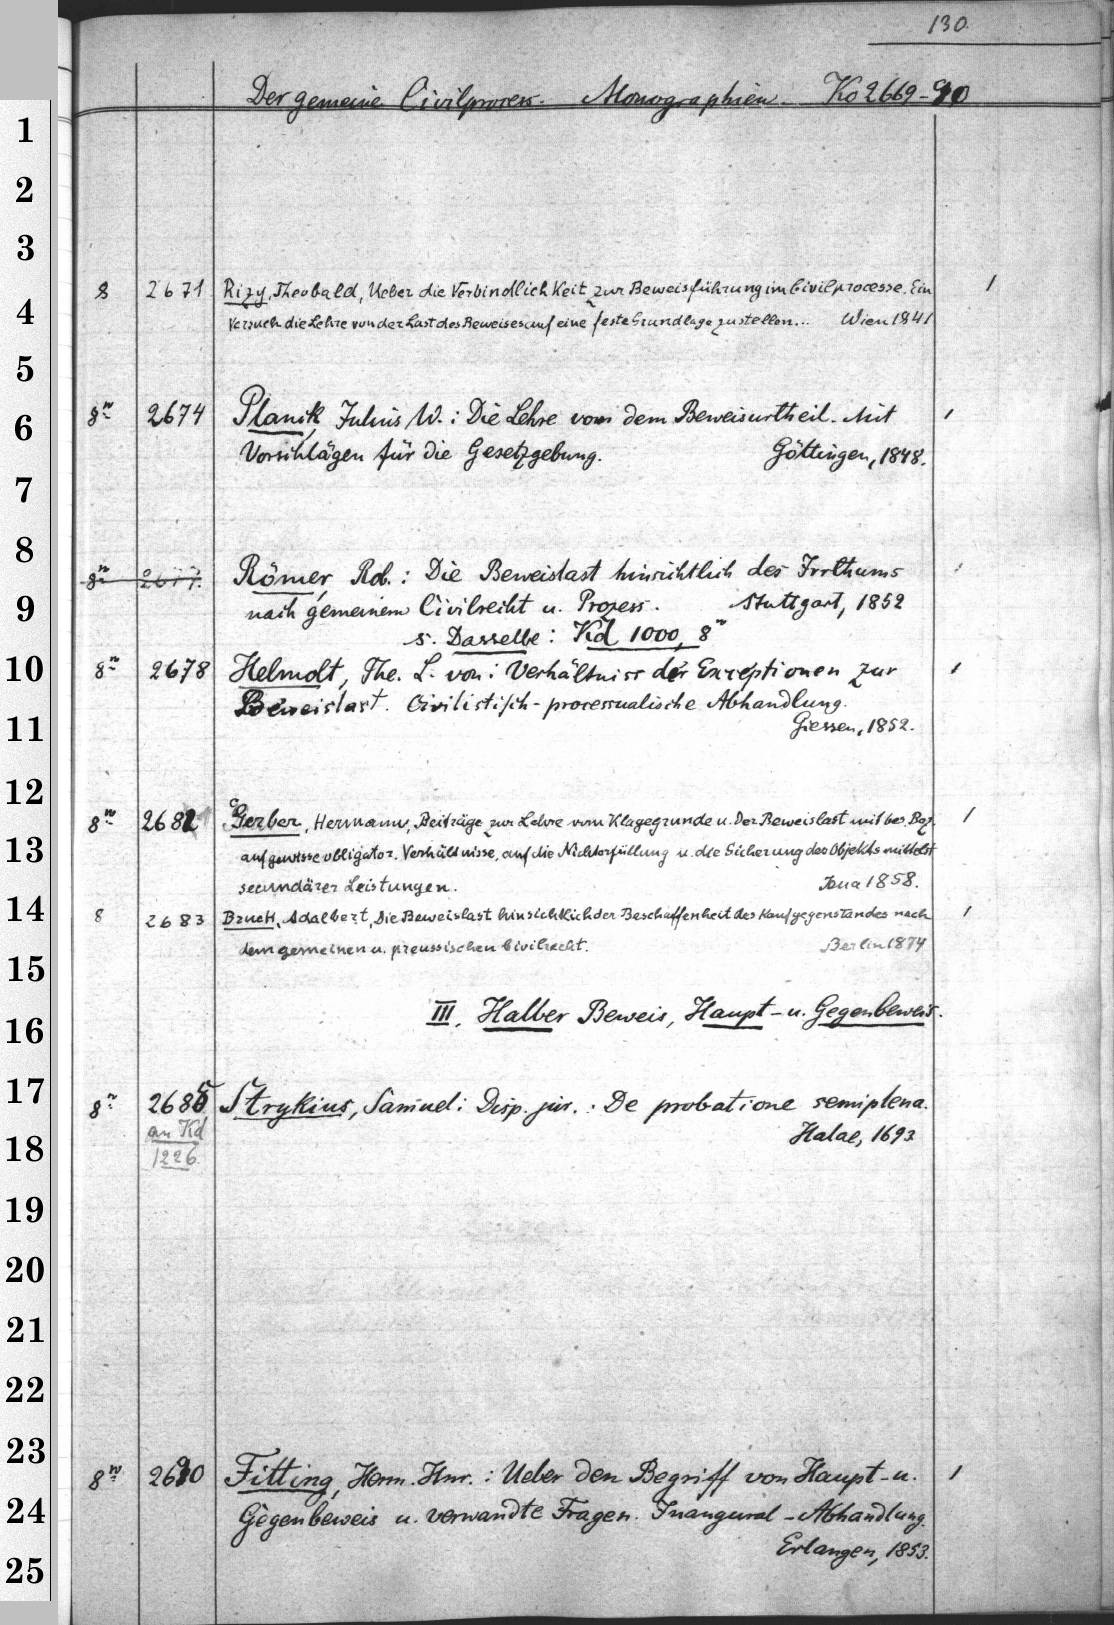 130.
Der gemeine Civilprocess. Monographien. Ko 2669-90
8 2671 Rizy, Theobald, Ueber die Verbindlichkeit zur Beweisführung im Civilprocesse. Ein /
Versuch die Lehre von der Last des Beweises auf eine feste Grundlage zu stellen... Wien 1841
8º 2674 Planck, Julius W.: Die Lehre von dem Beweisurtheil. Mit /
Vorschlägen für die Gesetzgebung. Göttingen, 1848.
8º 2677. Römer, Rob.: Die Beweislast hinsichtlich des Irrthums
nach gemeinem Civilrecht u. Prozess. Stuttgart, 1852
s. Dasselbe: Kd 1000, 8º
8º 2678 Helmolt, The. L. von: Verhältniss der Exceptionen zur /
Beweislast. Civilistisch-processualische Abhandlung.
Giessen, 1852.
8º 2682 Gerber, Hermann, Beiträge zur Lehre vom Klagegrunde u. der Beweislast mit bes. Bez. /
auf gewisse obligator. Verhältnisse, auf die Nichterfüllung u. die Sicherung des Objekts mittelst
secundärer Leistungen. Jena 1858.
8 2683 Bruck, Adalbert, Die Beweislast hinsichtlich der Beschaffenheit des Kaufgegenstandes nach /
dem gemeinen u. preussischen Civilrecht. Berlin 1874
III. Halber Beweis, Haupt- u. Gegenbeweis.
8º 2685 Strykius, Samuel: Disp. jur.: De probatione semiplena.
an Kd Halae, 1693
1226.
8º 2690 Fitting, Herm. Hnr.: Ueber den Begriff von Haupt- u. /
Gegenbeweis u. verwandte Fragen. Inaugural-Abhandlung.
Erlangen, 1853.
1
2
3
4
5
6
7
8
9
10
11
12
13
14
15
16
17
18
19
20
21
22
23
24
25